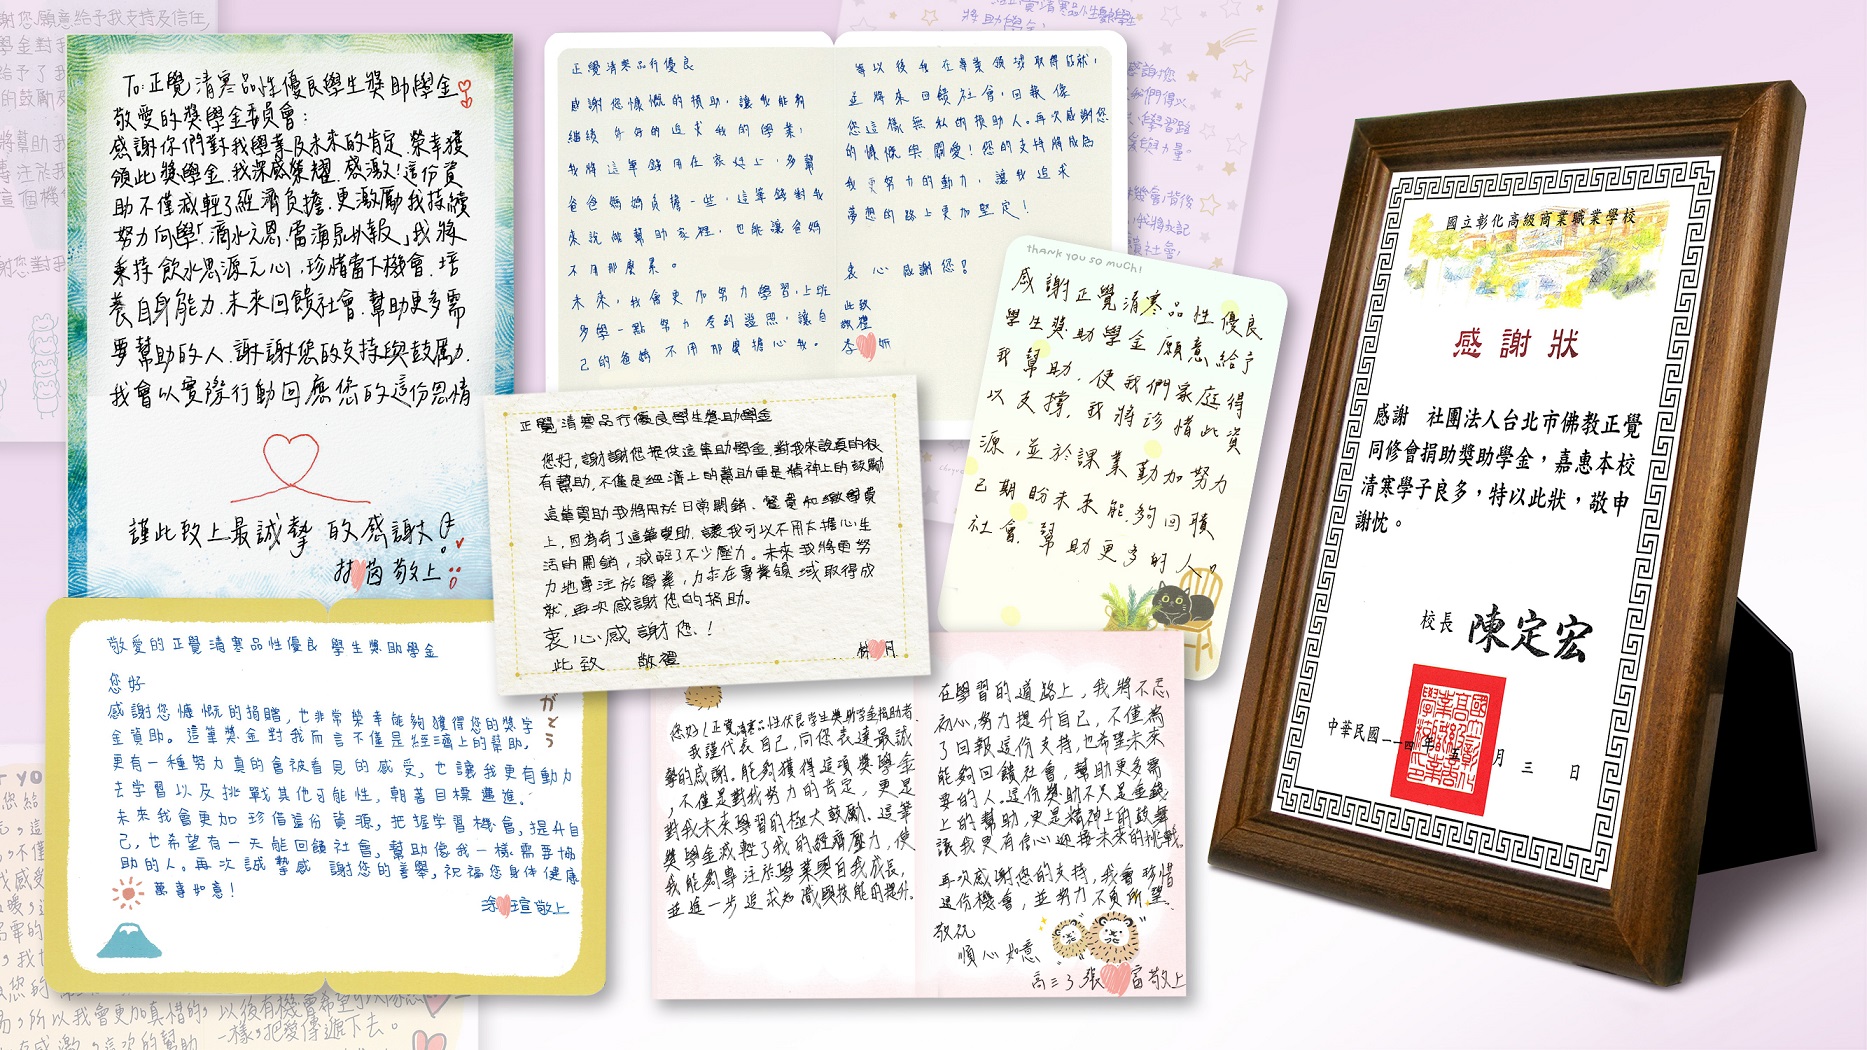 To:正覺清寒品性優良學生獎助學金
敬愛的獎學金委員會:
感謝你們對我學業及未來的肯定.榮幸獲
領此獎學金.我深感榮耀.感激!這份資
助不僅減輕了經濟負擔.更激勵我持續
努力向學「滴水之恩.當湧泉以報」我將
秉持飲水思源之心,珍惜當下機會.培
養自身能力.未來回饋社會.幫助更多需
要幫助的人.謝謝您的支持與鼓勵.
我會以實際行動回應您的這份恩情
謹此致上最誠摯的感謝
茵敬上
正覺清寒品行優良
感謝您慷慨的捐助,讓我能夠
繼續 的追求我的學業,
我將這筆錢用在家庭上,多幫
爸爸媽媽負擔一些,這筆錢對我
來說能幫助家裡,也能讓爸媽
不用那麼累。
未來,我會更加努力學習,上班
多學一點努力 ,讓自
己的爸媽不用那麼擔心我。
等以後我在專業領域取得成就,
並將來回饋社會,回報像
您這樣無私的捐助人。再次感謝您
的慷慨與關愛!您的支持將成為
我更努力的動力,讓我追求
夢想的路上更加堅定!
衷心感謝您!
此致
敬禮
李 妍
THANK YOU SO MUCH!
感謝正覺清寒品性優良
學生獎助學金願意給予
我幫助.使我們家庭得
以支撐,我將珍惜此資
源,並於課業勤加努力
己期盼未來能夠回積
社會.幫助更多的人。
正覺清寒品行優良學生獎助學金
您好,謝謝您提供這筆助學金.對我來說真的很
有幫助,不僅是經濟上的幫助更是精神上的鼓勵
這筆資助我將用於日常開銷、餐費和繳學費
上,因為有了這筆資助,讓我可以不用太擔心生
活的開銷,減輕了不少壓力。未來我將更努
力地專注於學業,力求在專業領域取得成
就,再次感謝您的捐助。
衷心感謝您!
此致 敬禮
林 月
敬愛的正覺清寒品性優良學生獎助學金
您好
感謝您慷慨的捐贈,也非常榮幸能夠獲得您的獎字
金資助。這筆獎金對我而言不僅是經濟上的幫助,
更有一種努力真的會被看見的感受,也讓我更有動力
去學習以及挑戰其他可能性,朝著目標邁進。
未來我會更加珍惜這份資源,把握學習機會,提升自
己,也希望有一天能回饋社會,幫助像我一樣需要協
助的人。再次誠摯感謝您的善舉,祝福您身体健康
萬事如意!
涂 瑄敬上
がとう
您好!正覺清寒品性优良学生獎助学金捐助者
我謹代表自己,向您表達最誠
摯的感謝。能夠獲得這項獎學金
,不僅是對我努力的肯定,更是
對我未來學習的極大鼓勵。這筆
獎學金減輕了我的經濟壓力,使
我能夠專注於學業與自我成長,
並進一步追求知識與技能的提升。
在學習的道路上,我將不忘
初心,努力提升自己,不僅為
了回報這份支持,也希望未來
能夠回饋社會,幫助更多需
要的人。這份獎助不只是金錢
上的幫助,更是精神上的鼓舞
讓我更有信心迎接未來的挑戰。
再次感謝您的支持,我會珍惜
這份機會,並努力不負所望.
敬祝
順心如意
張 富敬上
國立彰化高級商業職業學校
感謝狀
感謝 社團法人台北市佛教正覺
同修會捐助獎助學金,嘉惠本校
清寒學子良多,特以此狀,敬申
謝忱。
校長 陳定宏
中華民國一一四年五月三日